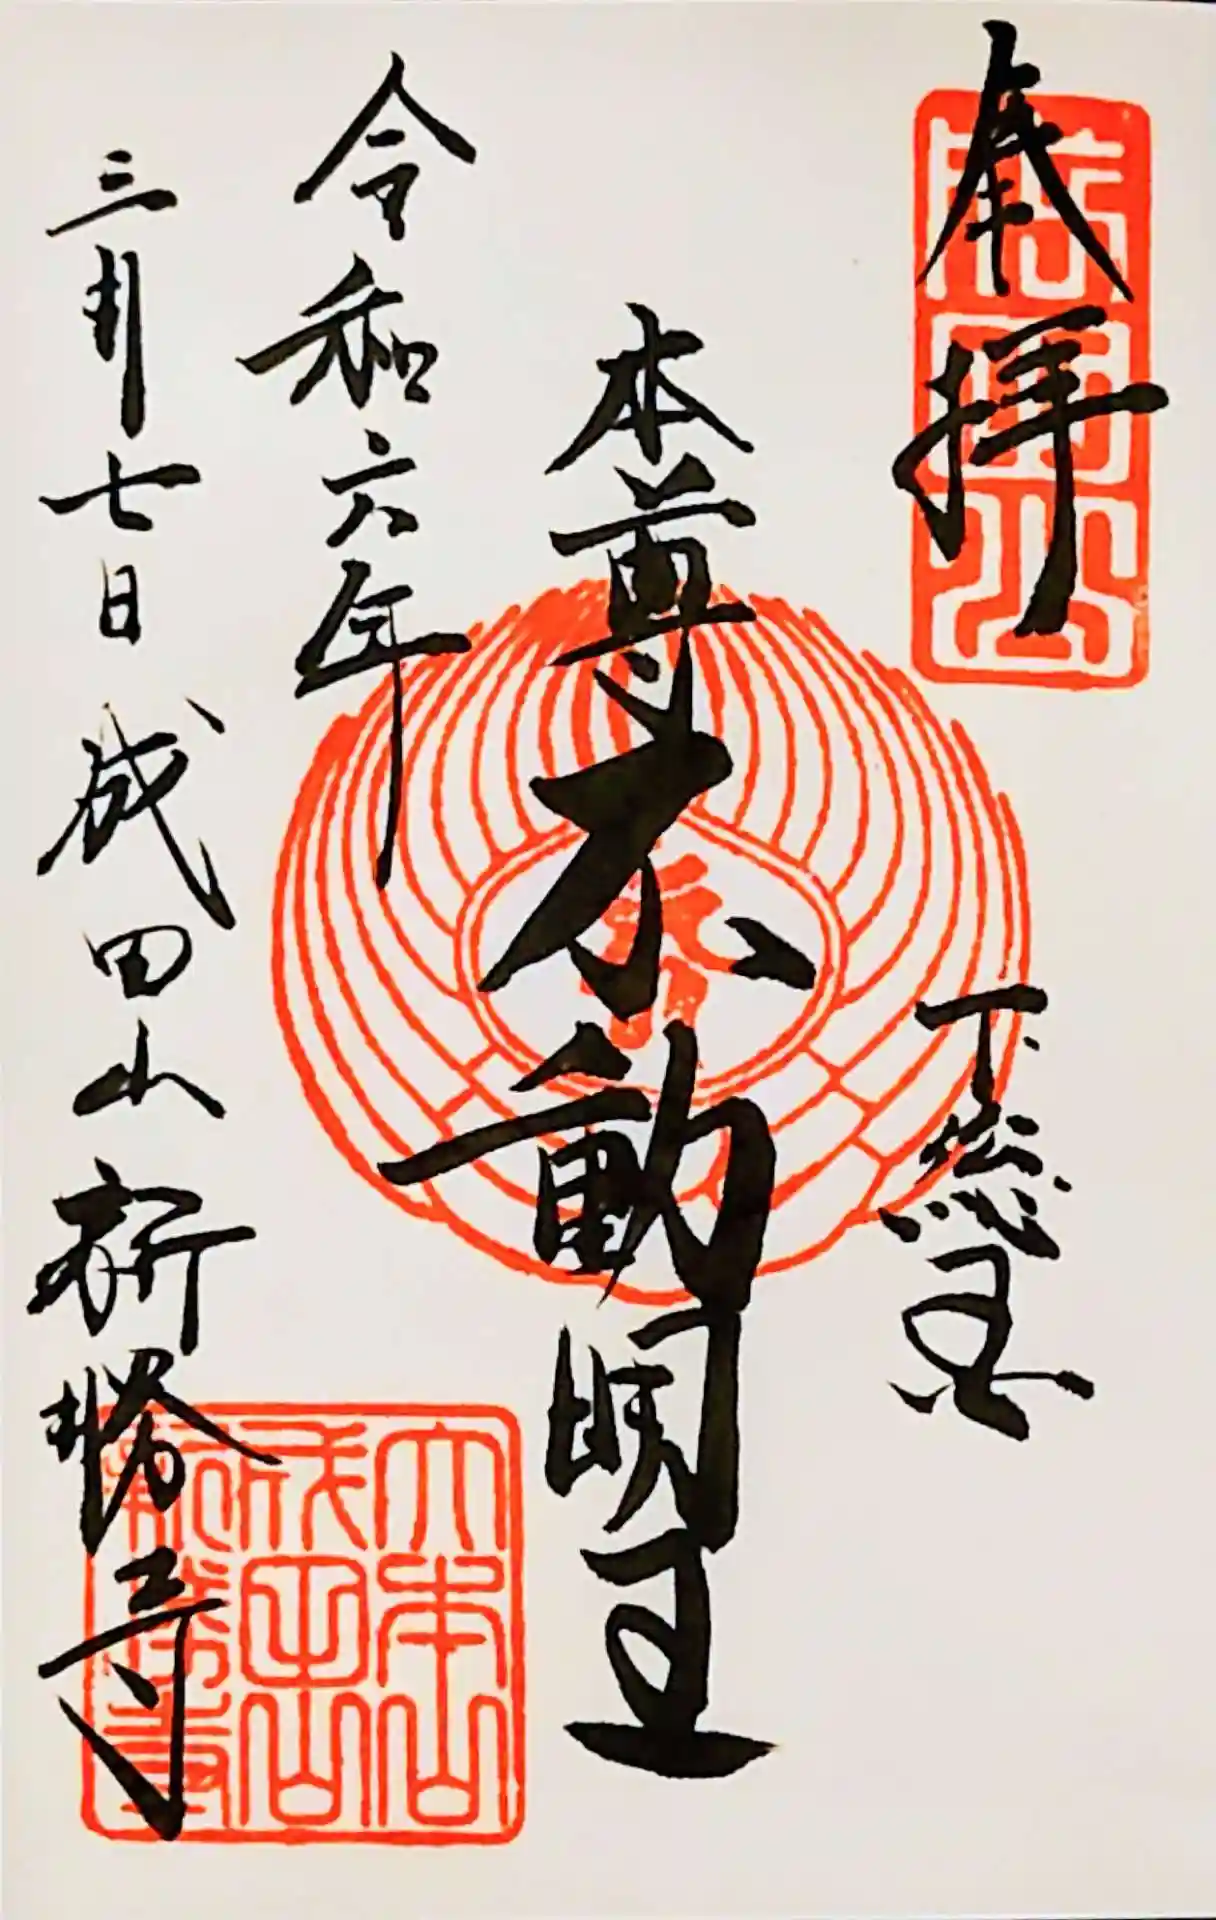 奉拝
下総国
本尊不動明王
令和六年
三月七日 成田山新勝寺
成田山
大本山
成田山
新勝寺